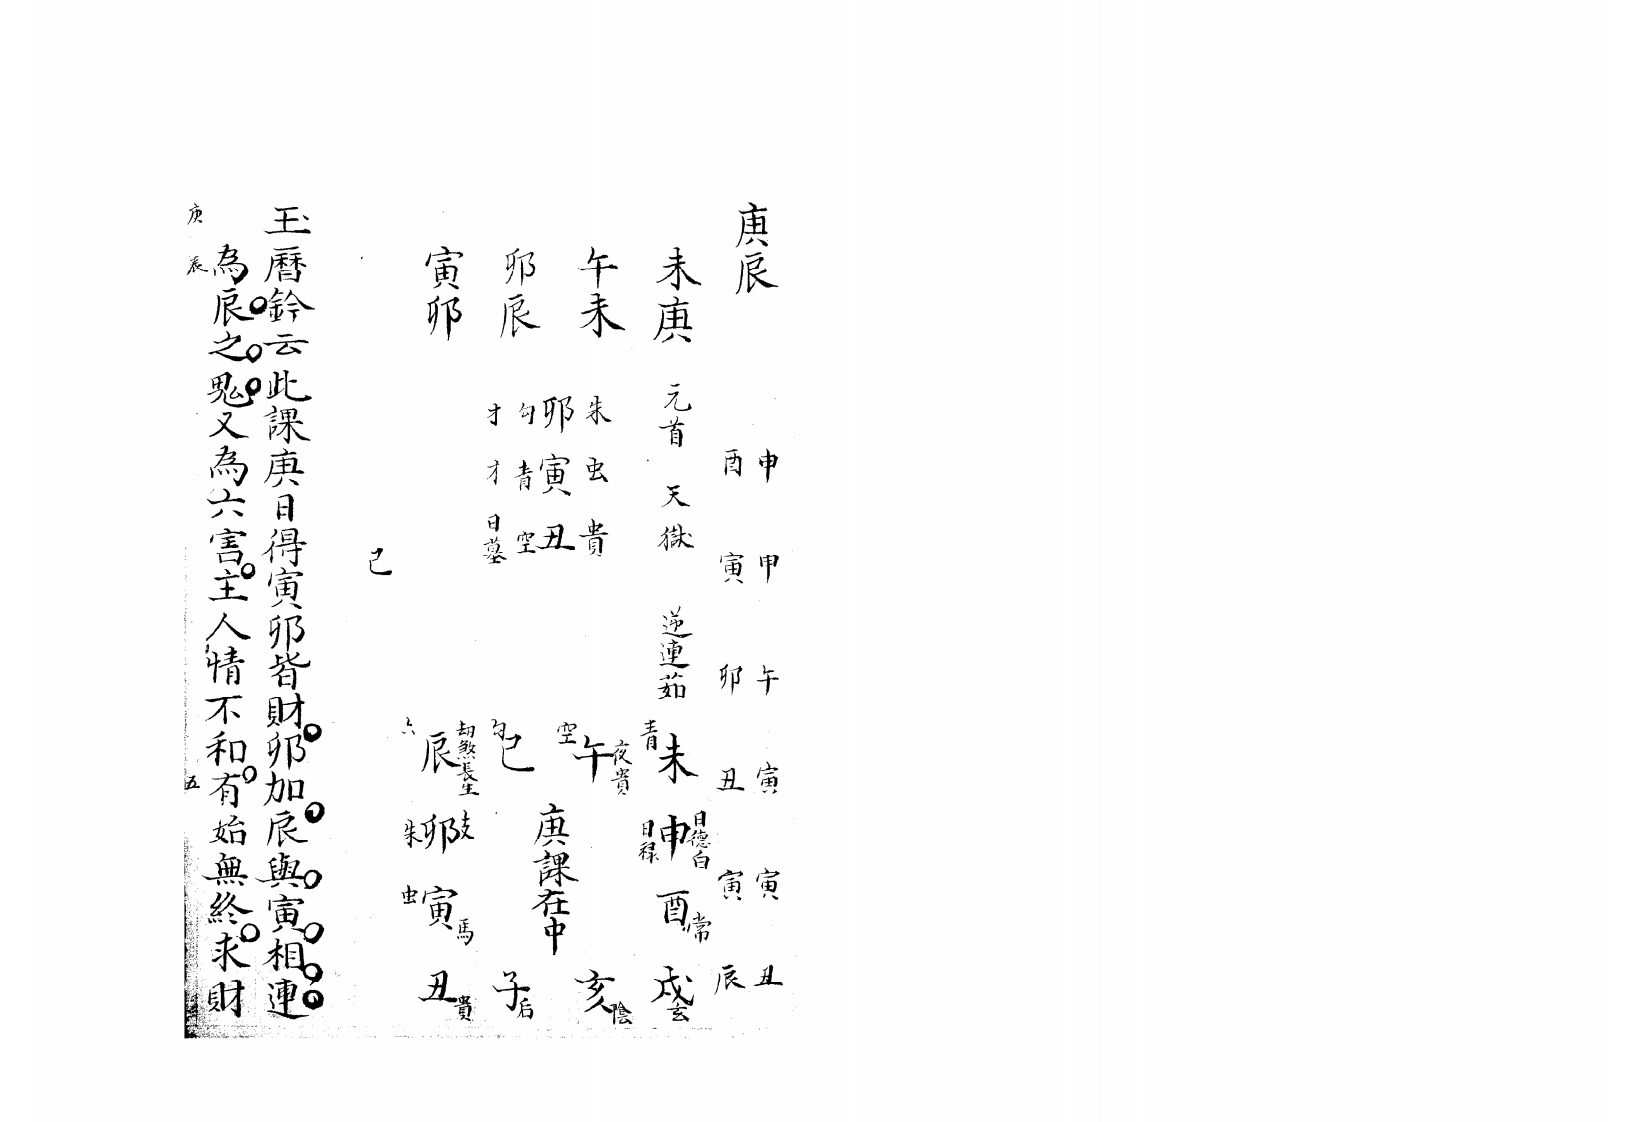 庚辰
申 甲 午 寅 寅 丑
酉 寅 卯 丑 寅 辰
未庚
午未
卯辰
寅卯
元首 天獄 逆連茹
朱 虫 貴
卯 寅 丑
勾 青 空
才 才 日墓
青 未
日德白 申 日祿
酉 常
戌 玄
空 午 夜貴
亥 陰
勾 巳
庚課在中
子 后
六 辰 劫煞長生
朱 卯 支
虫 寅 馬
丑 貴
己
玉曆鈐云此課庚日得寅卯皆財卯加辰與寅相連
為辰之鬼又為六害主人情不和有始無終求財
庚辰 五